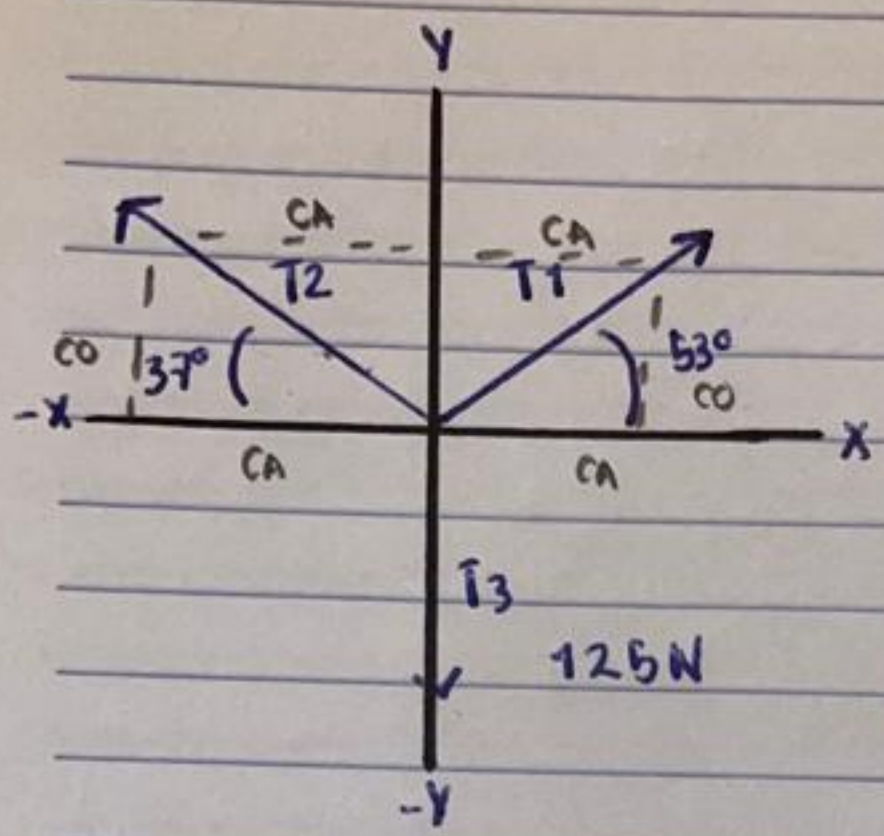 Y
CA CA
T2 T1
CO 37° 53°
CO
-X X
CA CA
T3
125N
-Y